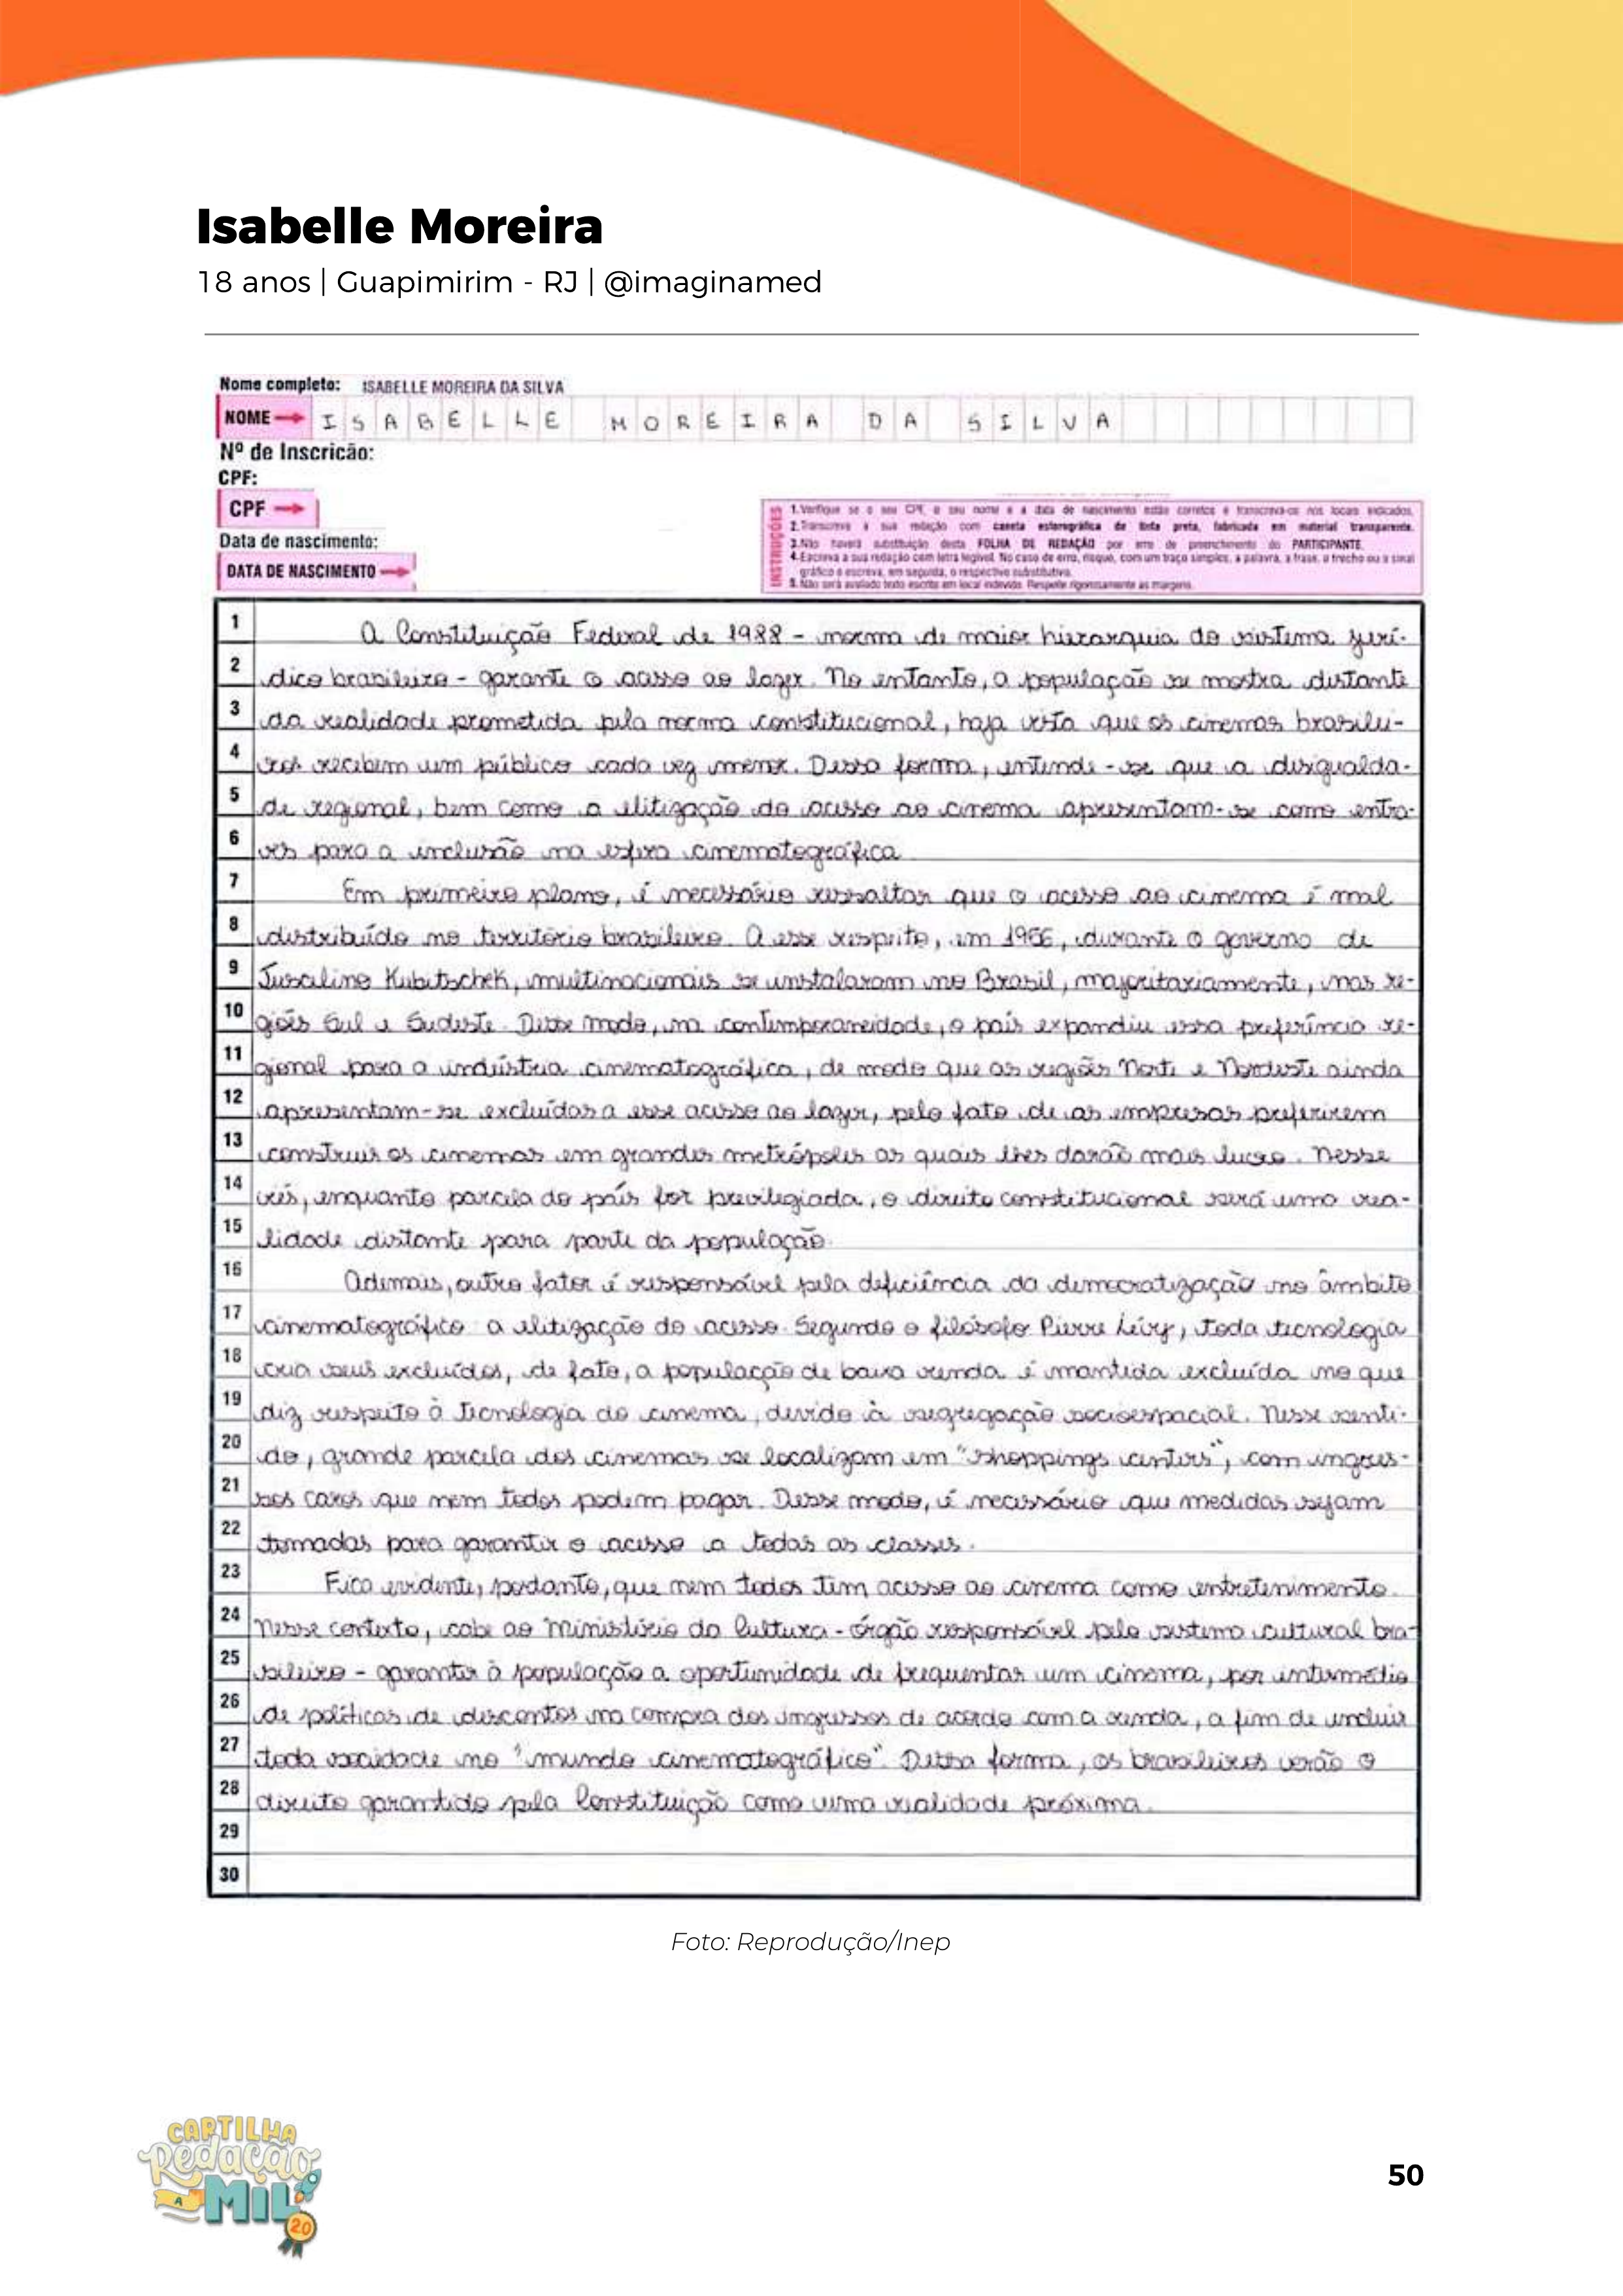 Isabelle Moreira
18 anos | Guapimirim - RJ | @imaginamed
Nome completo: ISABELLE MOREIRA DA SILVA
NOME ISABELLE MOREIRA DA SILVA
Nº de Inscricão:
CPF:
CPF
Data de nascimento:
DATA DE NASCIMENTO
INSTRUÇÕES
1. Verifique se o seu CPF, o seu nome e a data de nascimento estão corretos e transcreva-os nos locais indicados.
2. Transcreva a sua redação com caneta esferográfica de tinta preta, fabricada em material transparente.
3. Não haverá substituição desta FOLHA DE REDAÇÃO por erro de preenchimento do PARTICIPANTE.
4. Escreva a sua redação com letra legível. No caso de erro, risque, com um traço simples, a palavra, a frase, o trecho ou o sinal
gráfico e escreva, em seguida, o respectivo substitutivo.
5. Não será avaliado texto escrito em local indevido. Respeite rigorosamente as margens.
1 A Constituição Federal de 1988 - norma de maior hierarquia do sistema jurí-
2 dico brasileiro - garante o acesso ao lazer. No entanto, a população se mostra distante
3 da realidade prometida pela norma constitucional, haja vista que os cinemas brasilei-
4 ros recebem um público cada vez menor. Dessa forma, entende-se que a desigualda-
5 de regional, bem como a elitização do acesso ao cinema apresentam-se como entra-
6 ves para a inclusão na esfera cinematográfica.
7 Em primeiro plano, é necessário ressaltar que o acesso ao cinema é mal
8 distribuído no território brasileiro. A esse respeito, em 1956, durante o governo de
9 Juscelino Kubitschek, multinacionais se instalaram no Brasil, majoritariamente, nas re-
10 giões Sul e Sudeste. Desse modo, na contemporaneidade, o país expandiu essa preferência re-
11 gional para a indústria cinematográfica, de modo que as regiões Norte e Nordeste ainda
12 apresentam-se excluídas a esse acesso ao lazer, pelo fato de as empresas preferirem
13 construir os cinemas em grandes metrópoles as quais lhes darão mais lucro. Nesse
14 viés, enquanto parcela do país for privilegiada, o direito constitucional será uma rea-
15 lidade distante para parte da população.
16 Ademais, outro fator é responsável pela deficiência da democratização no âmbito
17 cinematográfico: a elitização do acesso. Segundo o filósofo Pierre Lévy, toda tecnologia
18 cria seus excluídos, de fato, a população de baixa renda é mantida excluída no que
19 diz respeito à tecnologia do cinema, devido à segregação socioespacial. Nesse senti-
20 do, grande parcela dos cinemas se localizam em "shoppings centers", com ingres-
21 sos caros que nem todos podem pagar. Desse modo, é necessário que medidas sejam
22 tomadas para garantir o acesso a todas as classes.
23 Fica evidente, portanto, que nem todos tem acesso ao cinema como entretenimento.
24 Nesse contexto, cabe ao Ministério da Cultura - órgão responsável pelo sistema cultural bra-
25 sileiro - garantir à população a oportunidade de frequentar um cinema, por intermédio
26 de políticas de descontos na compra dos ingressos de acordo com a renda, a fim de incluir
27 toda sociedade no "mundo cinematográfico". Dessa forma, os brasileiros verão o
28 direito garantido pela Constituição como uma realidade próxima.
29
30
Foto: Reprodução/Inep
CARTILHA
Redação
A MIL
20
50